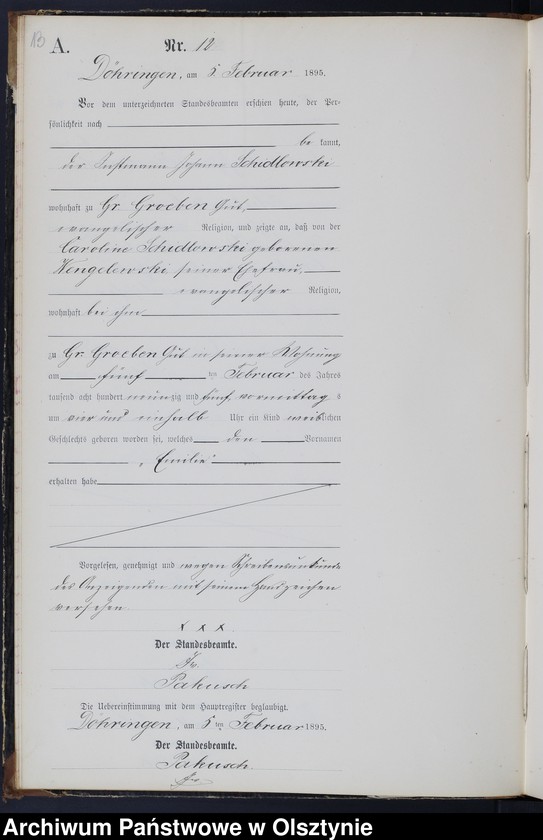 13
A.
Nr. 12
Döhringen, am 5 Februar 1895.
Vor dem unterzeichneten Standesbeamten erschien heute, der Per-
sönlichkeit nach
be kannt,
der Instmann Johann Schidlowski
wohnhaft zu Gr. Groeben Gut,
evangelischer Religion, und zeigte an, daß von der
Caroline Schidlowski geborenen
Wengelewski seiner Ehefrau,
evangelischer Religion,
wohnhaft bei ihm
zu Gr. Groeben Gut in seiner Wohnung
am fünf ten Februar des Jahres
tausend acht hundert neunzig und fünf vormittag s
um vier und einhalb Uhr ein Kind weiblichen
Geschlechts geboren worden sei, welches den Vornamen
„Emilie“
erhalten habe
Vorgelesen, genehmigt und wegen Schreibensunkunde
des Anzeigenden mit seinem Handzeichen
versehen.
x x x
Der Standesbeamte.
Pakusch
Die Uebereinstimmung mit dem Hauptregister beglaubigt.
Döhringen, am 5 ten Februar 1895.
Der Standesbeamte.
Pakusch.
Archiwum Państwowe w Olsztynie